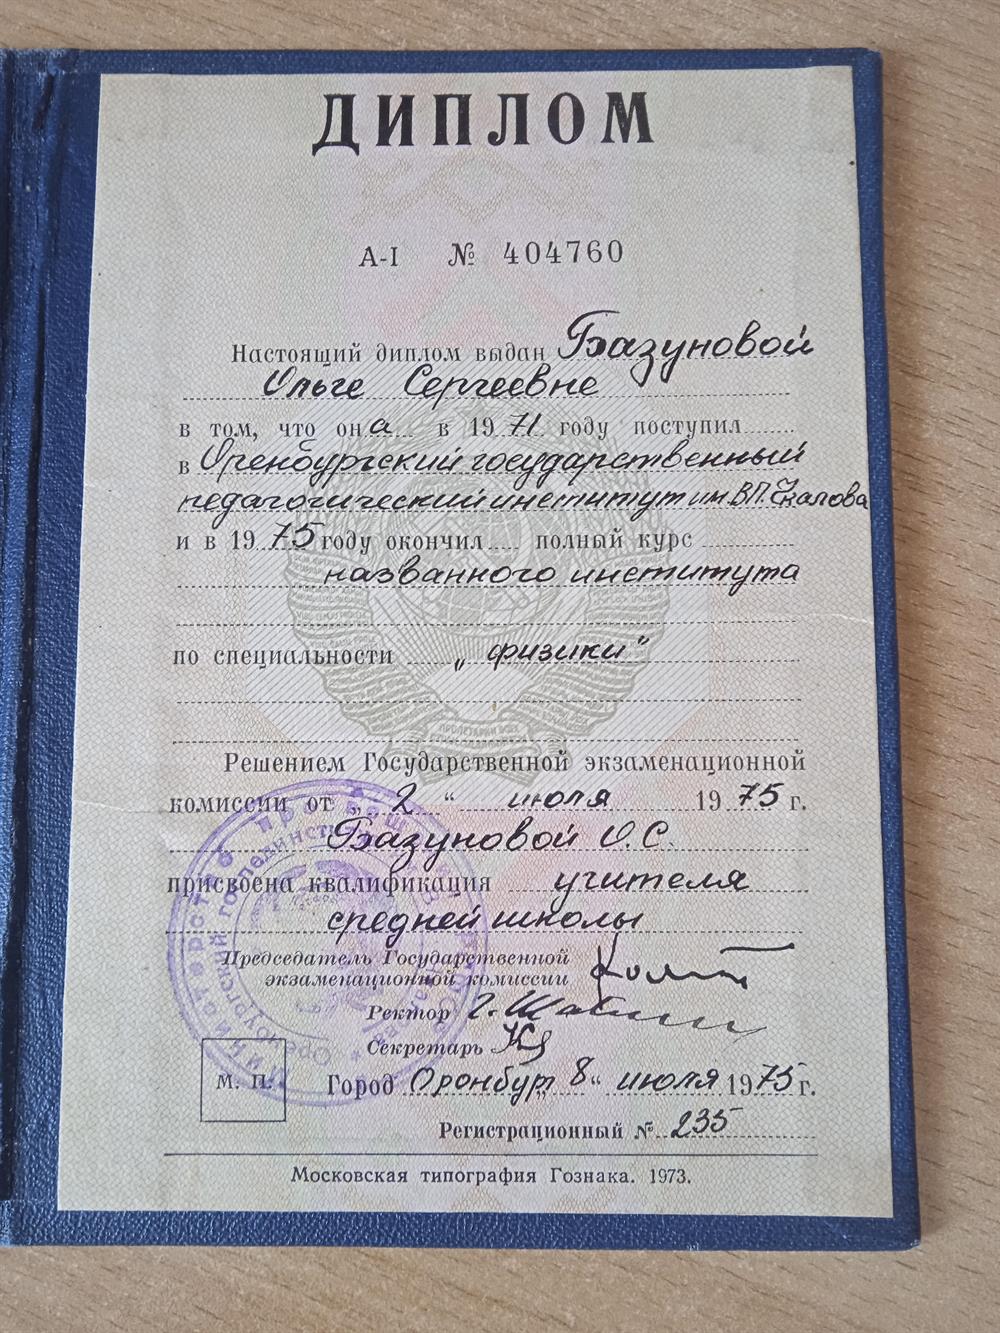 ДИПЛОМ
А-I № 404760
Настоящий диплом выдан Базуновой
Ольге Сергеевне
в том, что она в 1971 году поступил
в Оренбургский государственный
педагогический институт им. В.П. Чкалова
и в 1975 году окончил полный курс
названного института
по специальности „физики"
Решением Государственной экзаменационной
комиссии от „2" июля 1975 г.
Базуновой О.С.
присвоена квалификация учителя
средней школы
Председатель Государственной
экзаменационной комиссии
Ректор
Секретарь
М. П. Город Оренбург „8" июля 1975 г.
Регистрационный № 235
Московская типография Гознака. 1973.